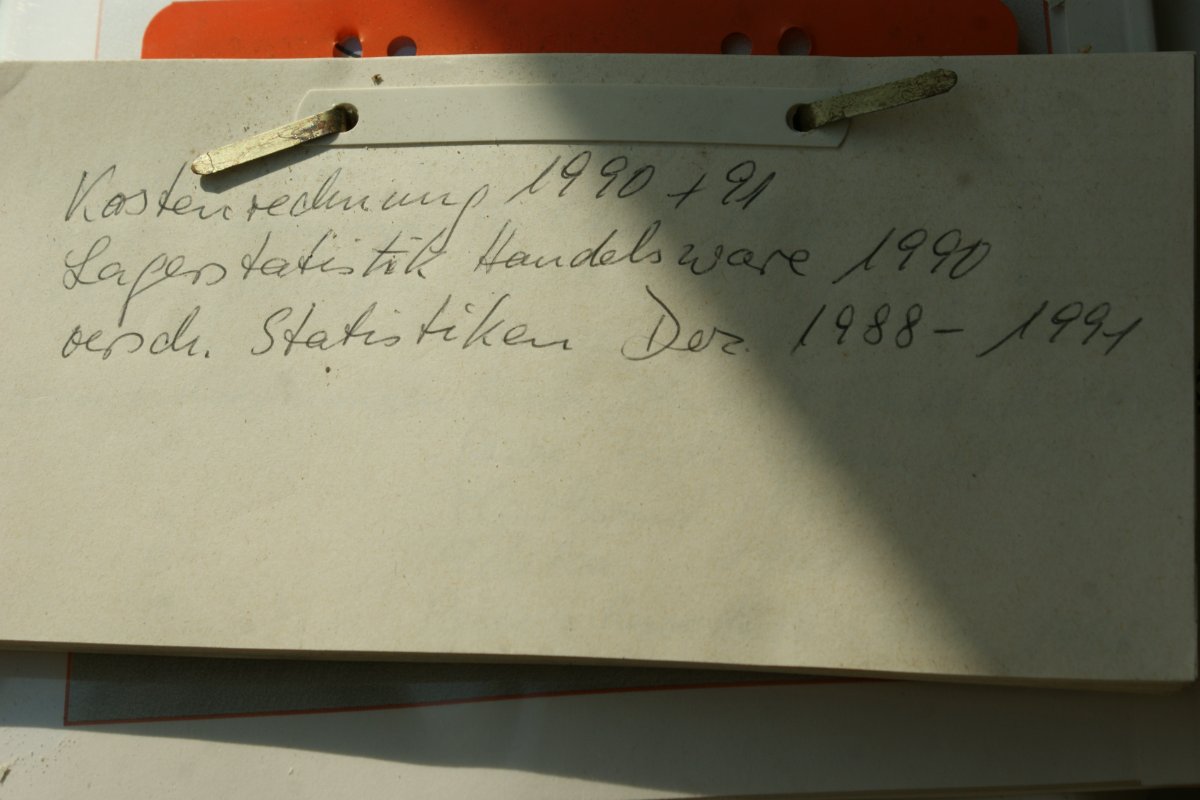 Kostenrechnung 1990 + 91
Lagerstatistik Handelsware 1990
versch. Statistiken Dez. 1988 - 1991